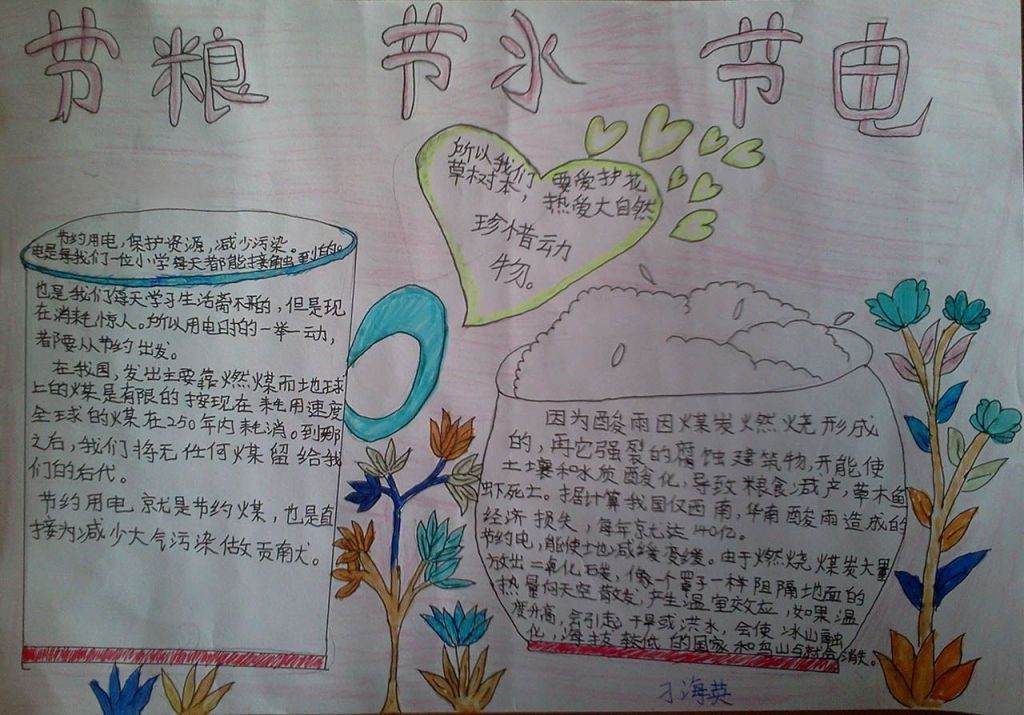 节粮 节水 节电
所以我们要爱护花
草树木，热爱大自然
珍惜动
物。
节约用电，保护资源，减少污染。
电是每我们一位小学每天者都能接触到的。
也是我们每天学习生活离不开的，但是现
在消耗惊人。所以用电时的一举一动，
都要从节约出发。
在我国，发出主要靠燃煤而地球
上的煤是有限的按现在耗用速度
全球的煤在250年内耗消。到那
之后，我们将无任何煤留给我
们的后代。
节约用电京就是节约煤，也是直
接为减少大气污染做贡南大。
因为酸雨因煤炭燃烧形成
的，再它强裂的腐蚀建筑物，开能使
土壤和水质酸化，导致粮食减产，草木鱼
虾死亡。据计算我国仅西南，华南酸雨造成的
经济损失，每年京尤达140亿。
节约电，能使土地减缓变缓。由于燃烧煤炭大量
放出二氧化碳，像一个罩子一样阻隔地面的
热量向天空散发，产生温室效应，如果温
度升高，会引起干旱或洪水，会使冰山融
化，海拔较低的国家和岛屿就会消失。
刁海英